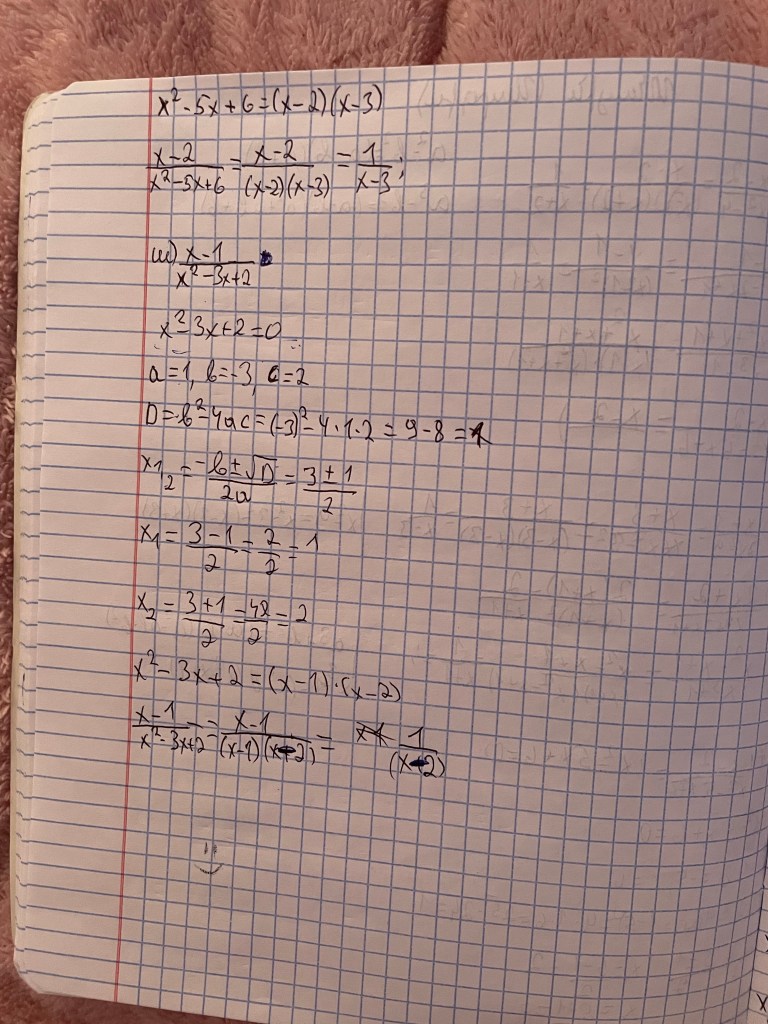 x² - 5x + 6 = (x - 2)(x - 3)
x-2/x²-5x+6 = x-2/(x-2)(x-3) = 1/x-3;
ш) x-1/x²-3x+2
x² - 3x + 2 = 0
a = 1, b = -3, c = 2
D = b² - 4ac = (-3)² - 4·1·2 = 9 - 8 = 1
x₁,₂ = -b±√D/2a = 3±1/2
x₁ = 3-1/2 = 2/2 = 1
x₂ = 3+1/2 = 4/2 = 2
x² - 3x + 2 = (x - 1)·(x - 2)
x-1/x²-3x+2 = x-1/(x-1)(x-2) = 1/(x-2)